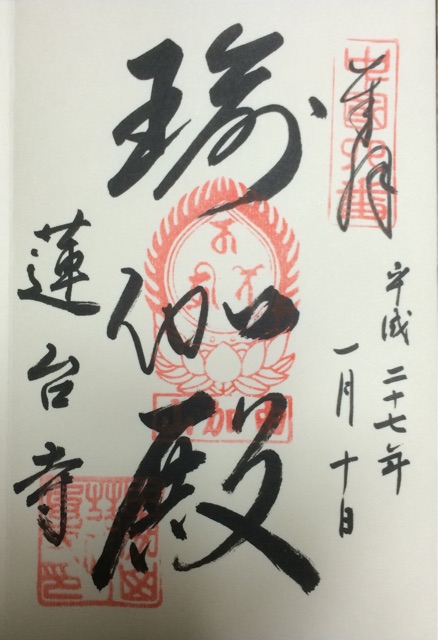 奉拝
平成二十七年
一月十日
瑜伽殿
蓮台寺